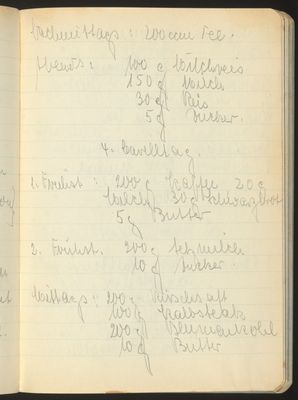 Nachmittags: 200 ccm Tee.
Abends: 100 g Milchreis
150 g Milch
30 g Reis
5 g Zucker.
4. Tag.
1. Frühst: 200 g Kaffee 20 g
Milch 30 g Schwarzbrot
5 g Butter
2. Frühst. 200 g milch
10 g Zucker.
Mittags: 200 g Kirschsaft
100 g Kalbsteak
200 g Blumenkohl
10 g Butter